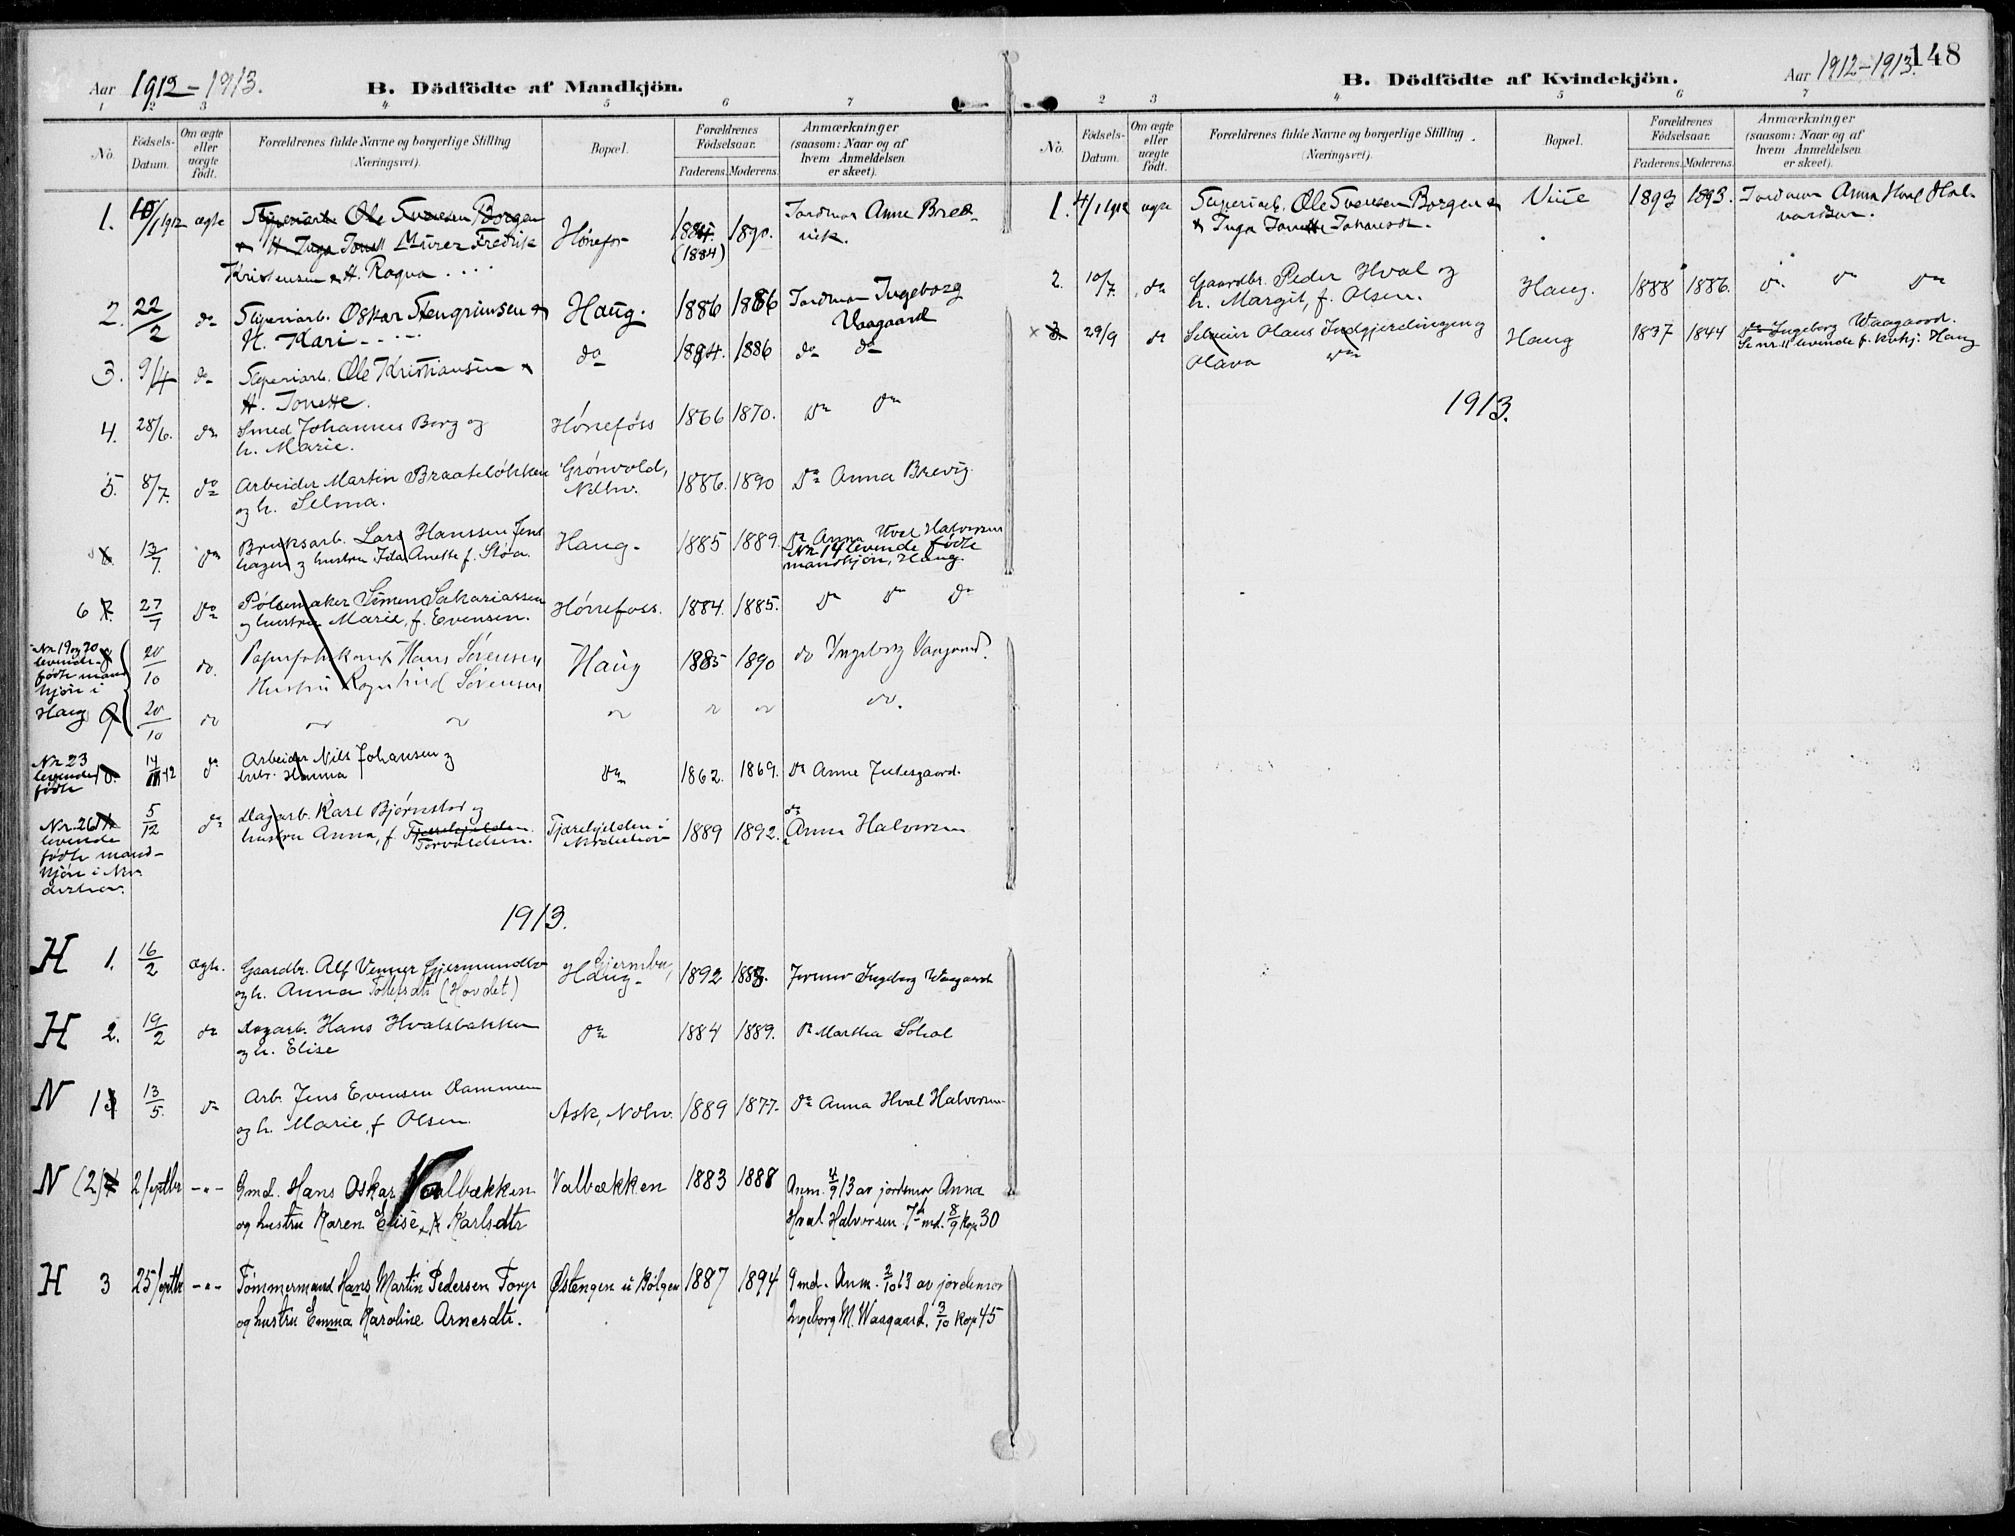 Aar 1912-1913.
B. Dödfödte af Mandkjön.
1 2 3 4 5 6 7
No. Födsels-Datum. Om ægte eller uægte födt. Forældrenes fulde Navne og borgerlige Stilling (Næringsvei). Bopæl. Forældrenes Födselsaar. Faderens. Moderens. Anmærkninger (saasom: Naar og af hvem Anmeldelsen er skeet).
1. 10/1 1912 ægte Sliperiarb. Ole Svensen Borgen Hönefos 1884. 1890. Jordmor Anne Bred-
& H. Inga Tonett Murer Fredrik (1884) vik.
Kristensen & H. Ragna ....
2. 22/2 do Sliperiarb. Oskar Stengrimsen & Haug. 1886 1886 Jordmor Ingeborg
H. Kari .... Vaagaard
3. 9/4 do Sliperiarb. Ole Kristiansen & do 1884. 1886 do do
H. Tonette.
4. 28/6. do Smed Johannes Borg og Hönefoss 1866 1870. do do
h. Marie.
5. 8/7. do Arbeider Martin Braateløkken Grönvold, 1886. 1890 do Anna Brevig
og h. Selma. Ndhv.
13/7. do Bruksarb. Lars Hanssen Jens Haug. 1885 1889. do Anna Hval Halvorsen
hagen og hustru Ida Anette f. Støa. Nr. 14 levende fødte
mandkjøn, Haug.
6 27/7 do Pølsemaker Simen Sakariassen Hönefoss. 1884. 1885. do do do
og hustru Marie, f. Evensen.
Nr. 19 og 20 levende fødte mandkjøn i Haug 20/10 do. Hans Sörensen Haug 1885 1890 do Ingeborg Vaagaard.
Hustru Ragnhild Sörensen
9 20/10 do do do do do do do.
Nr. 23 levende fødte 10. 14/11-12 do Arbeider Nils Johansen og do 1862. 1869. do Anne Julesgaard.
hstr. Hanna
Nr. 26 levende fødte mandkjøn i Norderhov. 5/12 do Dagarb. Karl Bjørnstad og Tjærekjelden i 1889 1892. do Anna Halvorsen
hustru Anna, f. Tjærekjelden. Torvaldsen. Norderhov
1913.
H 1. 16/2 ægte. Gaardbr. Alf Venner Gjermundbo Gjermbu, Haug. 1892 1888. Jormor Ingeborg Waagaard
og h. Anna Tollefsdtr (Hovdet)
H 2. 19/2 do Dagarb. Hans Hvalsbakken do 1884 1889. do Martha Sohol
og h. Elise
N 1 13/5. do Arb. Jens Evensen Dammen Ask, Ndhv. 1889 1877. do Anna Hval Halvorsen
og h. Marie, f Olsen.
N (2) 2/septbr -"- Gmd. Hans Oskar Valbækken Valbækken 1883 1888 Anm. 4/9 13 av jordmor Anna
og hustru Karen Elise Karlsdtr Hval Halvorsen 7de md. 8/9 kop 30
H 3 25/septbr -"- Tömmermand Hans Martin Pedersen Torp Östengen u Bölgen 1887 1894 9 md. Anm. 2/10 13 av jordemor
og hustru Emma Karoline Arnesdtr. Ingeborg M. Waagaard. 3/10 kop 45
148
B. Dödfödte af Kvindekjön.
Aar 1912-1913.
2 3 4 5 6 7
No. Födsels-Datum. Om ægte eller uægte födt. Forældrenes fulde Navne og borgerlige Stilling (Næringsvei). Bopæl. Forældrenes Födselsaar. Faderens. Moderens. Anmærkninger (saasom: Naar og af hvem Anmeldelsen er skeet).
1. 4/1 1912 ægte Sliperiarb. Ole Svensen Borgen & 1893 1893. Jordmor Anna Hval Hal-
& Inga Tonette Johansdt. vordsen.
2. 10/7. do Gaardbr. Peder Hval og Haug. 1888 1886. do do do
h. Margit, f. Olsen.
x 3. 29/9 do Olaus Indgjerdingen og Haug 1837 1844 do Ingeborg Waagaard.
Olava do Se nr. 11 levende f. kvkj. Haug
1913.